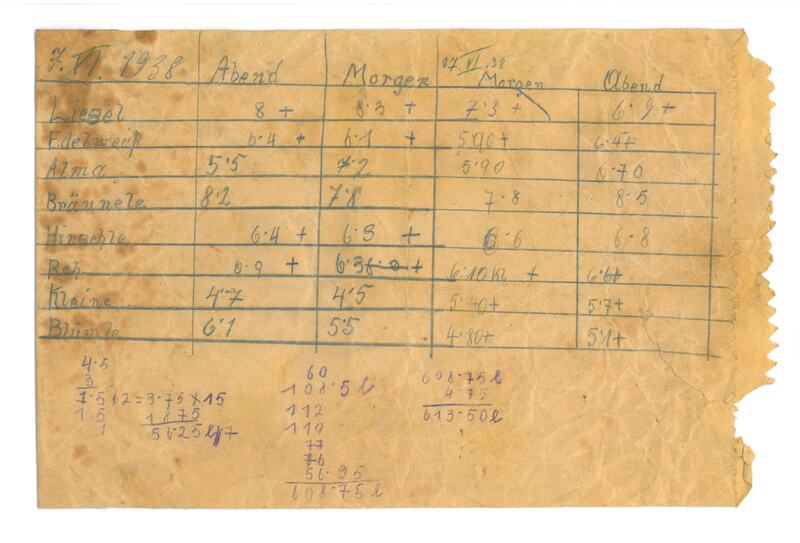 7. VI. 1938 Abend Morgen 17. VI. 38 Morgen Abend
Liesel 8 + 8·3 + 7·3 + 6·9 +
Edelweiß 6·4 + 6·1 + 5·90 + 6·4 +
Alma 5·5 7·2 5·90 6·70
Bräunele 8·2 7·8 7·8 8·5
Hirschle 6·4 + 6·3 + 6·6 6·8
Reh 6·9 + 6·3 + 6·10 + 6·6 +
Kleine 4·7 4·5 5·40 + 5·7 +
Blümle 6·1 5·5 4·80 + 5·1 +
4·5
3
7·5 : 2 = 3·75 × 15
1 5 1875
1 56·25 l
60
108·5 l
112
110
77
76
56·95
608·75 l
608·75 l
4 75
613·50 l